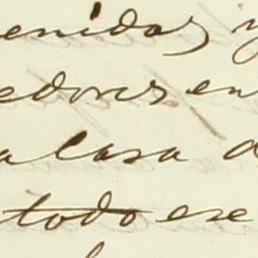 enidos y
edores en
a casa d
todo ese